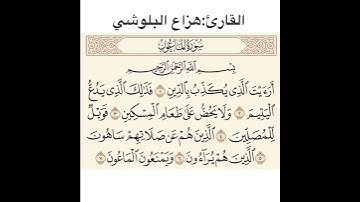 القارئ:هزاع البلوشي
سُورَةُ المَاعُونِ
بِسْمِ اللَّهِ الرَّحْمَٰنِ الرَّحِيمِ
أَرَءَيْتَ الَّذِى يُكَذِّبُ بِالدِّينِ ١ فَذَٰلِكَ الَّذِى يَدُعُّ
الْيَتِيمَ ٢ وَلَا يَحُضُّ عَلَىٰ طَعَامِ الْمِسْكِينِ ٣ فَوَيْلٌ
لِّلْمُصَلِّينَ ٤ الَّذِينَ هُمْ عَن صَلَاتِهِمْ سَاهُونَ
٥ الَّذِينَ هُمْ يُرَآءُونَ ٦ وَيَمْنَعُونَ الْمَاعُونَ ٧